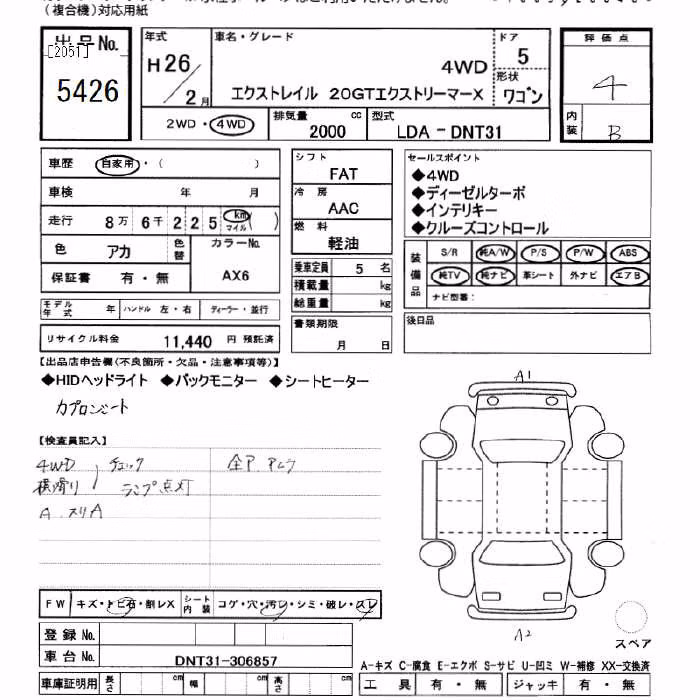 (複合機)対応用紙
出品No.
[2051]
5426
年式
H26/2月
車名・グレード
4WD
エクストレイル 20GTエクストリーマーX
ドア
5
形状
ワゴン
評価点
4
内装
B
2WD・4WD
排気量
2000 cc
型式
LDA-DNT31
車歴 自家用・( )
車検 年 月
走行 8万 6千 2 2 5 km マイル ( )
色 アカ 色替
カラーNo.
AX6
保証書 有・無
モデル年式 年 ハンドル 左・右 ディーラー・並行
リサイクル料金 11,440 円 預託済
シフト
FAT
冷房
AAC
燃料
軽油
乗車定員 5 名
積載量 kg
総重量 kg
書類期限
月 日
セールスポイント
◆4WD
◆ディーゼルターボ
◆インテリキー
◆クルーズコントロール
装備品
S/R 純A/W P/S P/W ABS
純TV 純ナビ 革シート 外ナビ エアB
ナビ型番:
後日品
【出品店申告欄(不良箇所・欠品・注意事項等)】
◆HIDヘッドライト ◆バックモニター ◆シートヒーター
カプロンシート
【検査員記入】
4WD チェック
横滑り ランプ点灯
A.スリA
A1
A2
スペア
FW キズ・トビ石・削レX シート内装 コゲ・穴・汚レ・シミ・破レ・スレ
登録No.
車台No. DNT31-306857
車庫証明用 長さ cm 幅 cm 高さ cm
A-キズ C-腐食 E-エクボ S-サビ U-凹ミ W-補修 XX-交換済
工具 有・無 ジャッキ 有・無